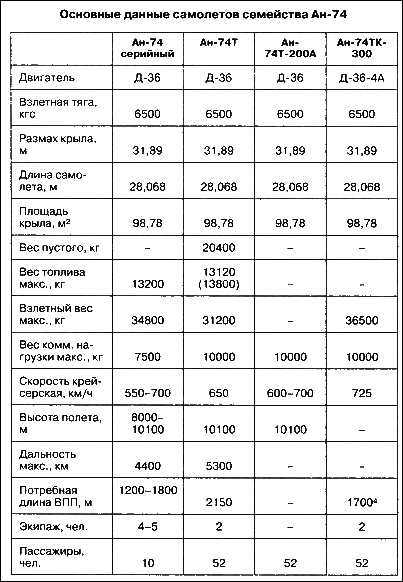 Основные данные самолетов семейства Ан-74
Ан-74 серийный Ан-74Т Ан-74Т-200А Ан-74ТК-300
Двигатель Д-36 Д-36 Д-36 Д-36-4А
Взлетная тяга, кгс 6500 6500 6500 6500
Размах крыла, м 31,89 31,89 31,89 31,89
Длина само-лета, м 28,068 28,068 28,068 28,068
Площадь крыла, м² 98,78 98,78 98,78 98,78
Вес пустого, кг – 20400 – –
Вес топлива макс., кг 13200 13120 (13800) – –
Взлетный вес макс., кг 34800 31200 – 36500
Вес комм. на-грузки макс., кг 7500 10000 10000 10000
Скорость крей-серская, км/ч 550–700 650 600–700 725
Высота полета, м 8000–10100 10100 10100 –
Дальность макс., км 4400 5300 – –
Потребная длина ВПП, м 1200–1800 2150 – 1700⁴
Экипаж, чел. 4–5 2 – 2
Пассажиры, чел. 10 52 52 52